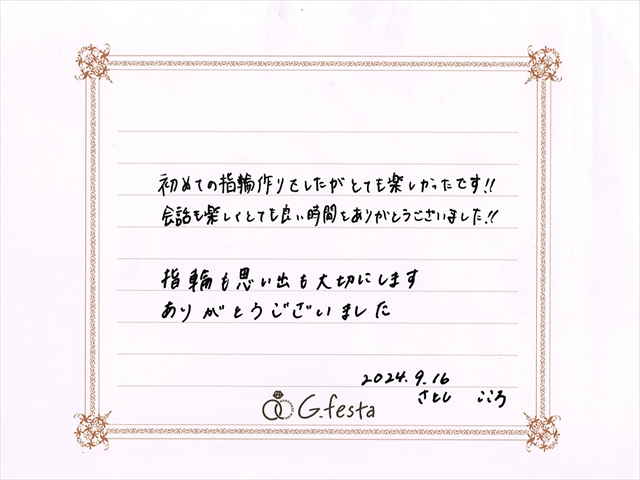 初めての指輪作りをしたがとても楽しかったです!!
会話も楽しくとても良い時間をありがとうございました!!
指輪も思い出も大切にします
ありがとうございました
2024.9.16
さとし こころ
G.festa